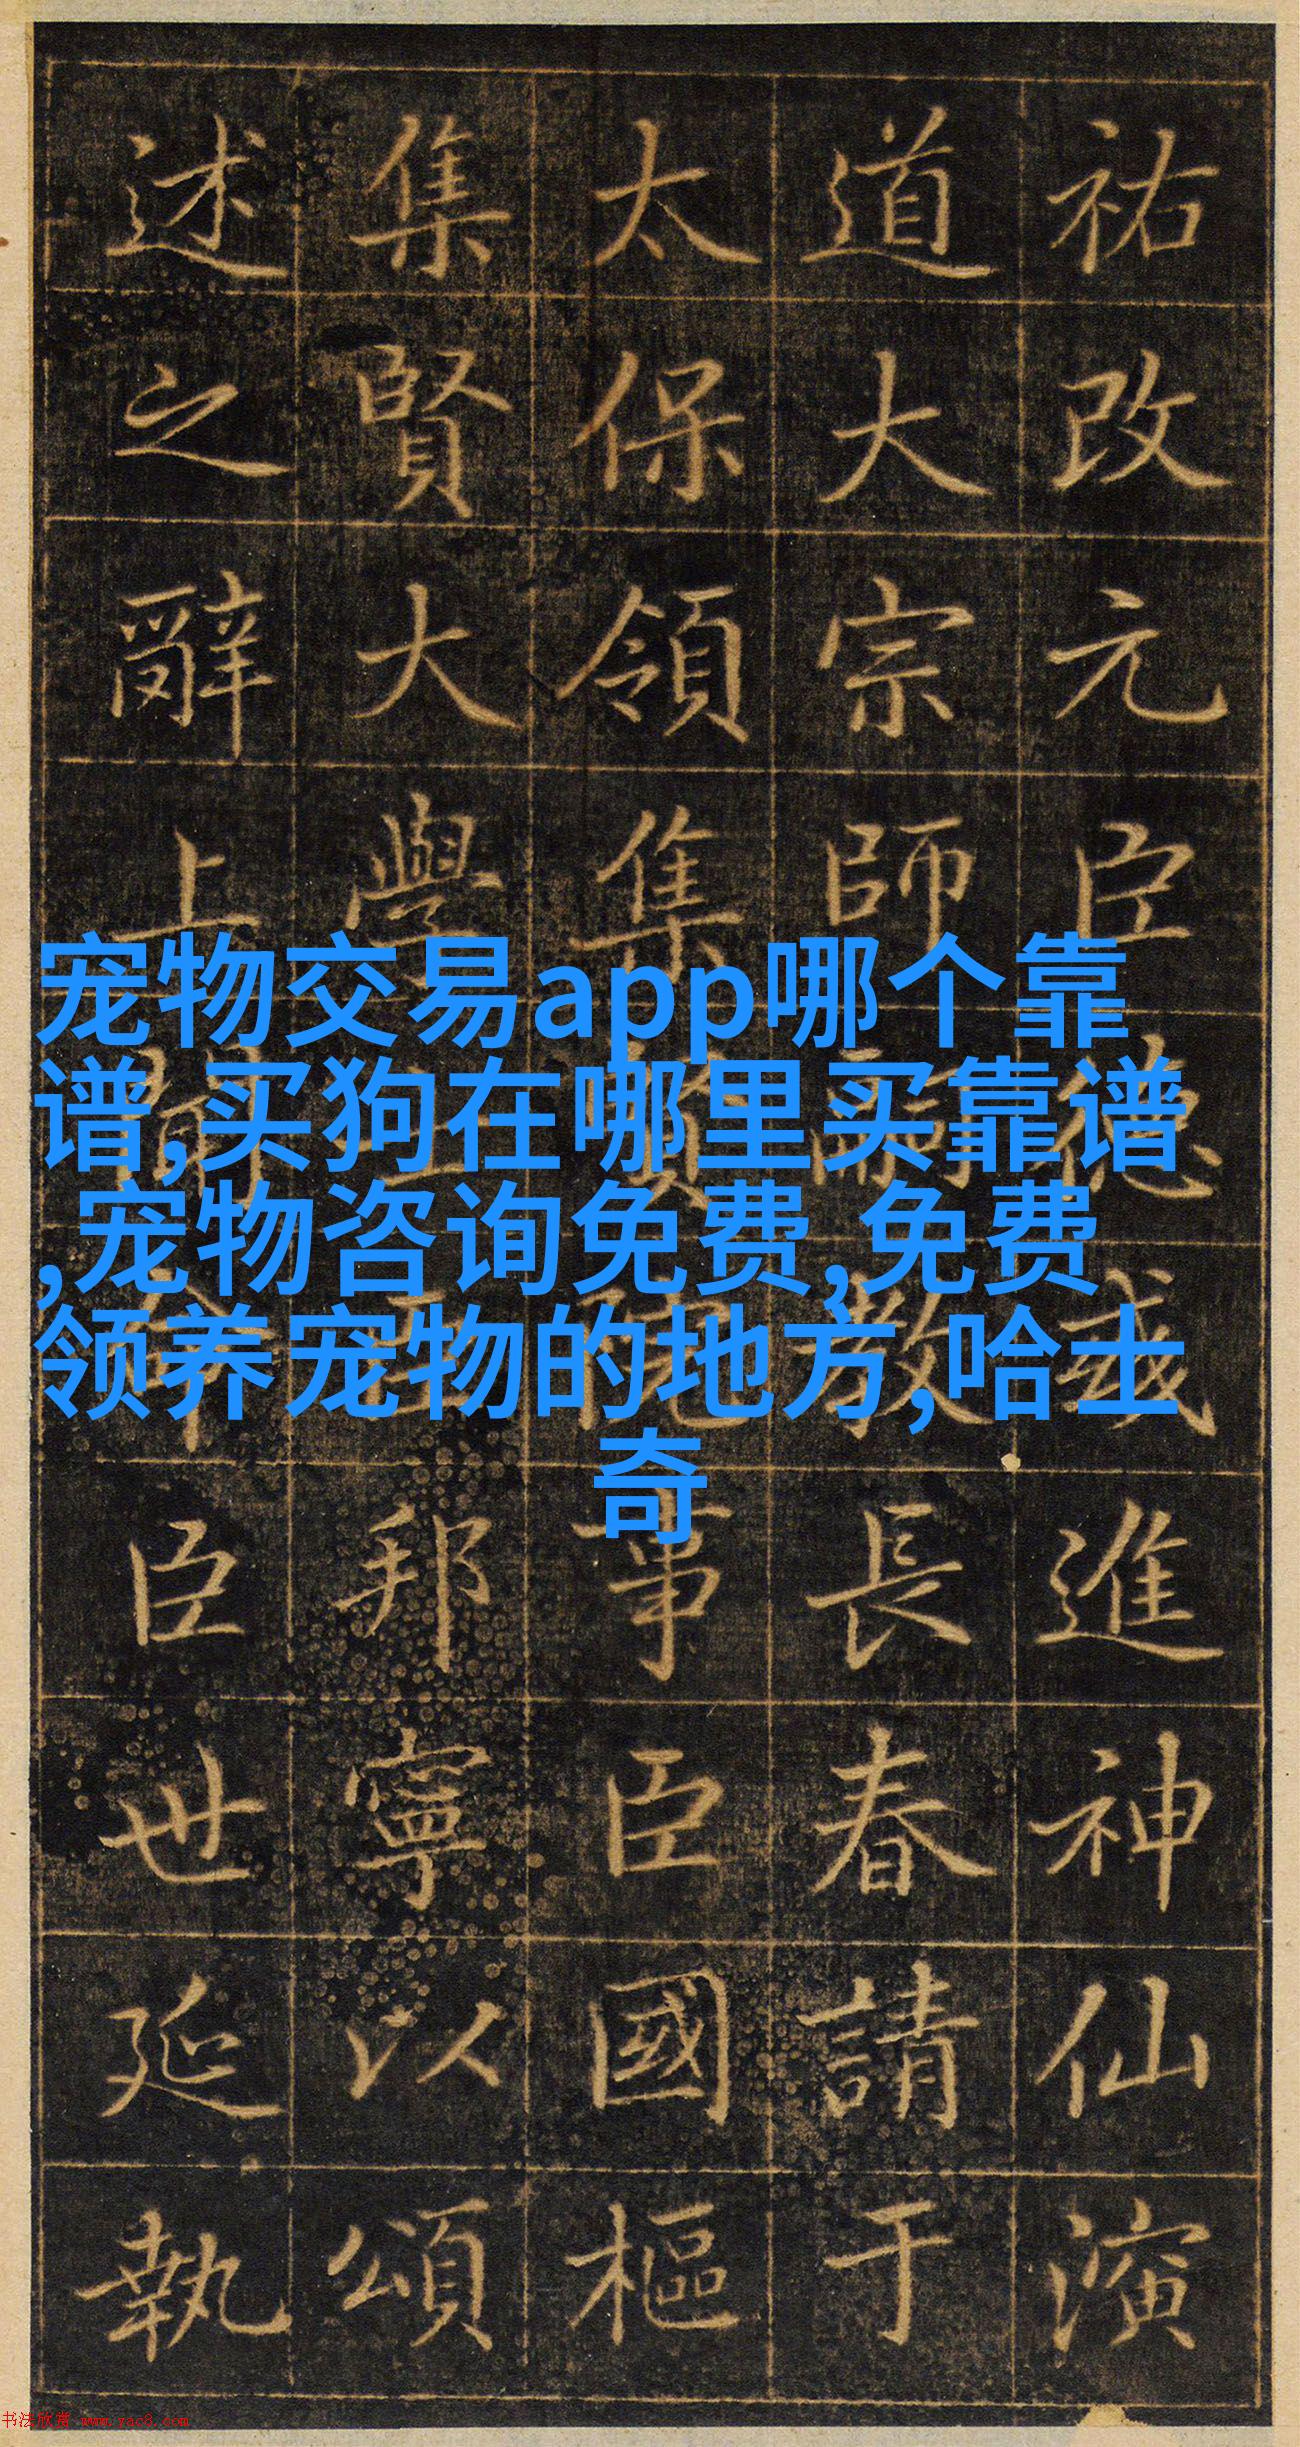 祐改元臣德彧進神仙演
道大宗師嗣教長春請于
太保領集賢院事臣國樞
集賢大學士臣邦寧以頌
述之辭上聞命臣世延執
宠物交易app哪个靠
谱,买狗在哪里买靠谱
,宠物咨询免费,免费
领养宠物的地方,哈士
奇
书法欣赏 www.yac8.com